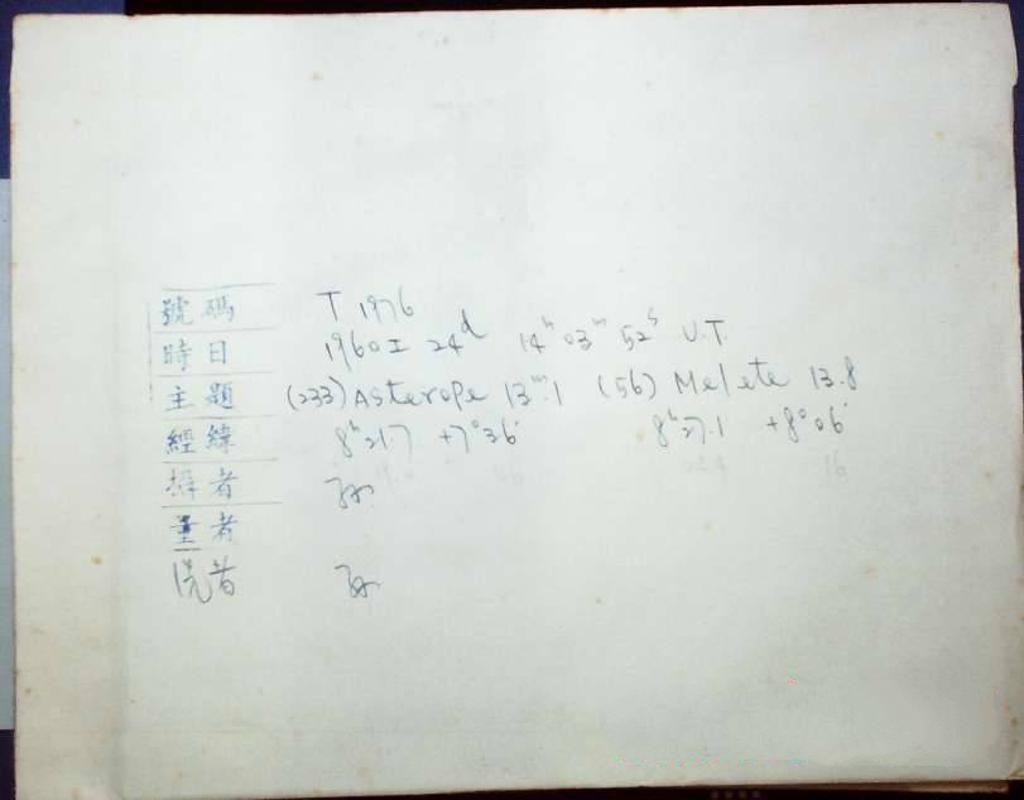 號碼 T 1976
時日 1960 I 24ᵈ 14ʰ 03ᵐ 52ˢ U.T.
主題 (233) Asterope 13ᵐ.1 (56) Melete 13.8
經緯 8ʰ 21.7 +7°36' 8ʰ 27.1 +8°06'
攝者 孙
量者
洗者 孙